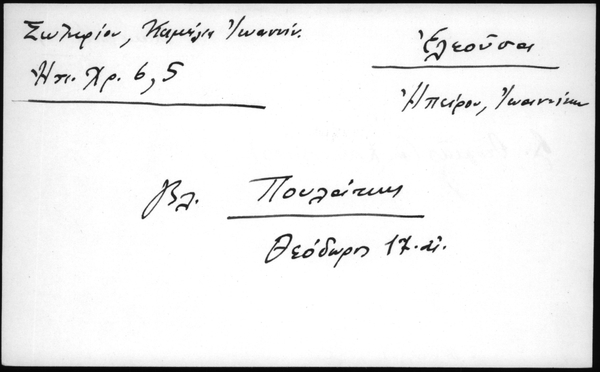 Σωτηρίου, Καμήλια Ἰωαννίν.
Ἠπ. Χρ. 6, 5
Ἐλεοῦσα
Ἠπείρου, Ἰωαννίνων
βλ. Πουλάκης
Θεόδωρος 17. αἰ.